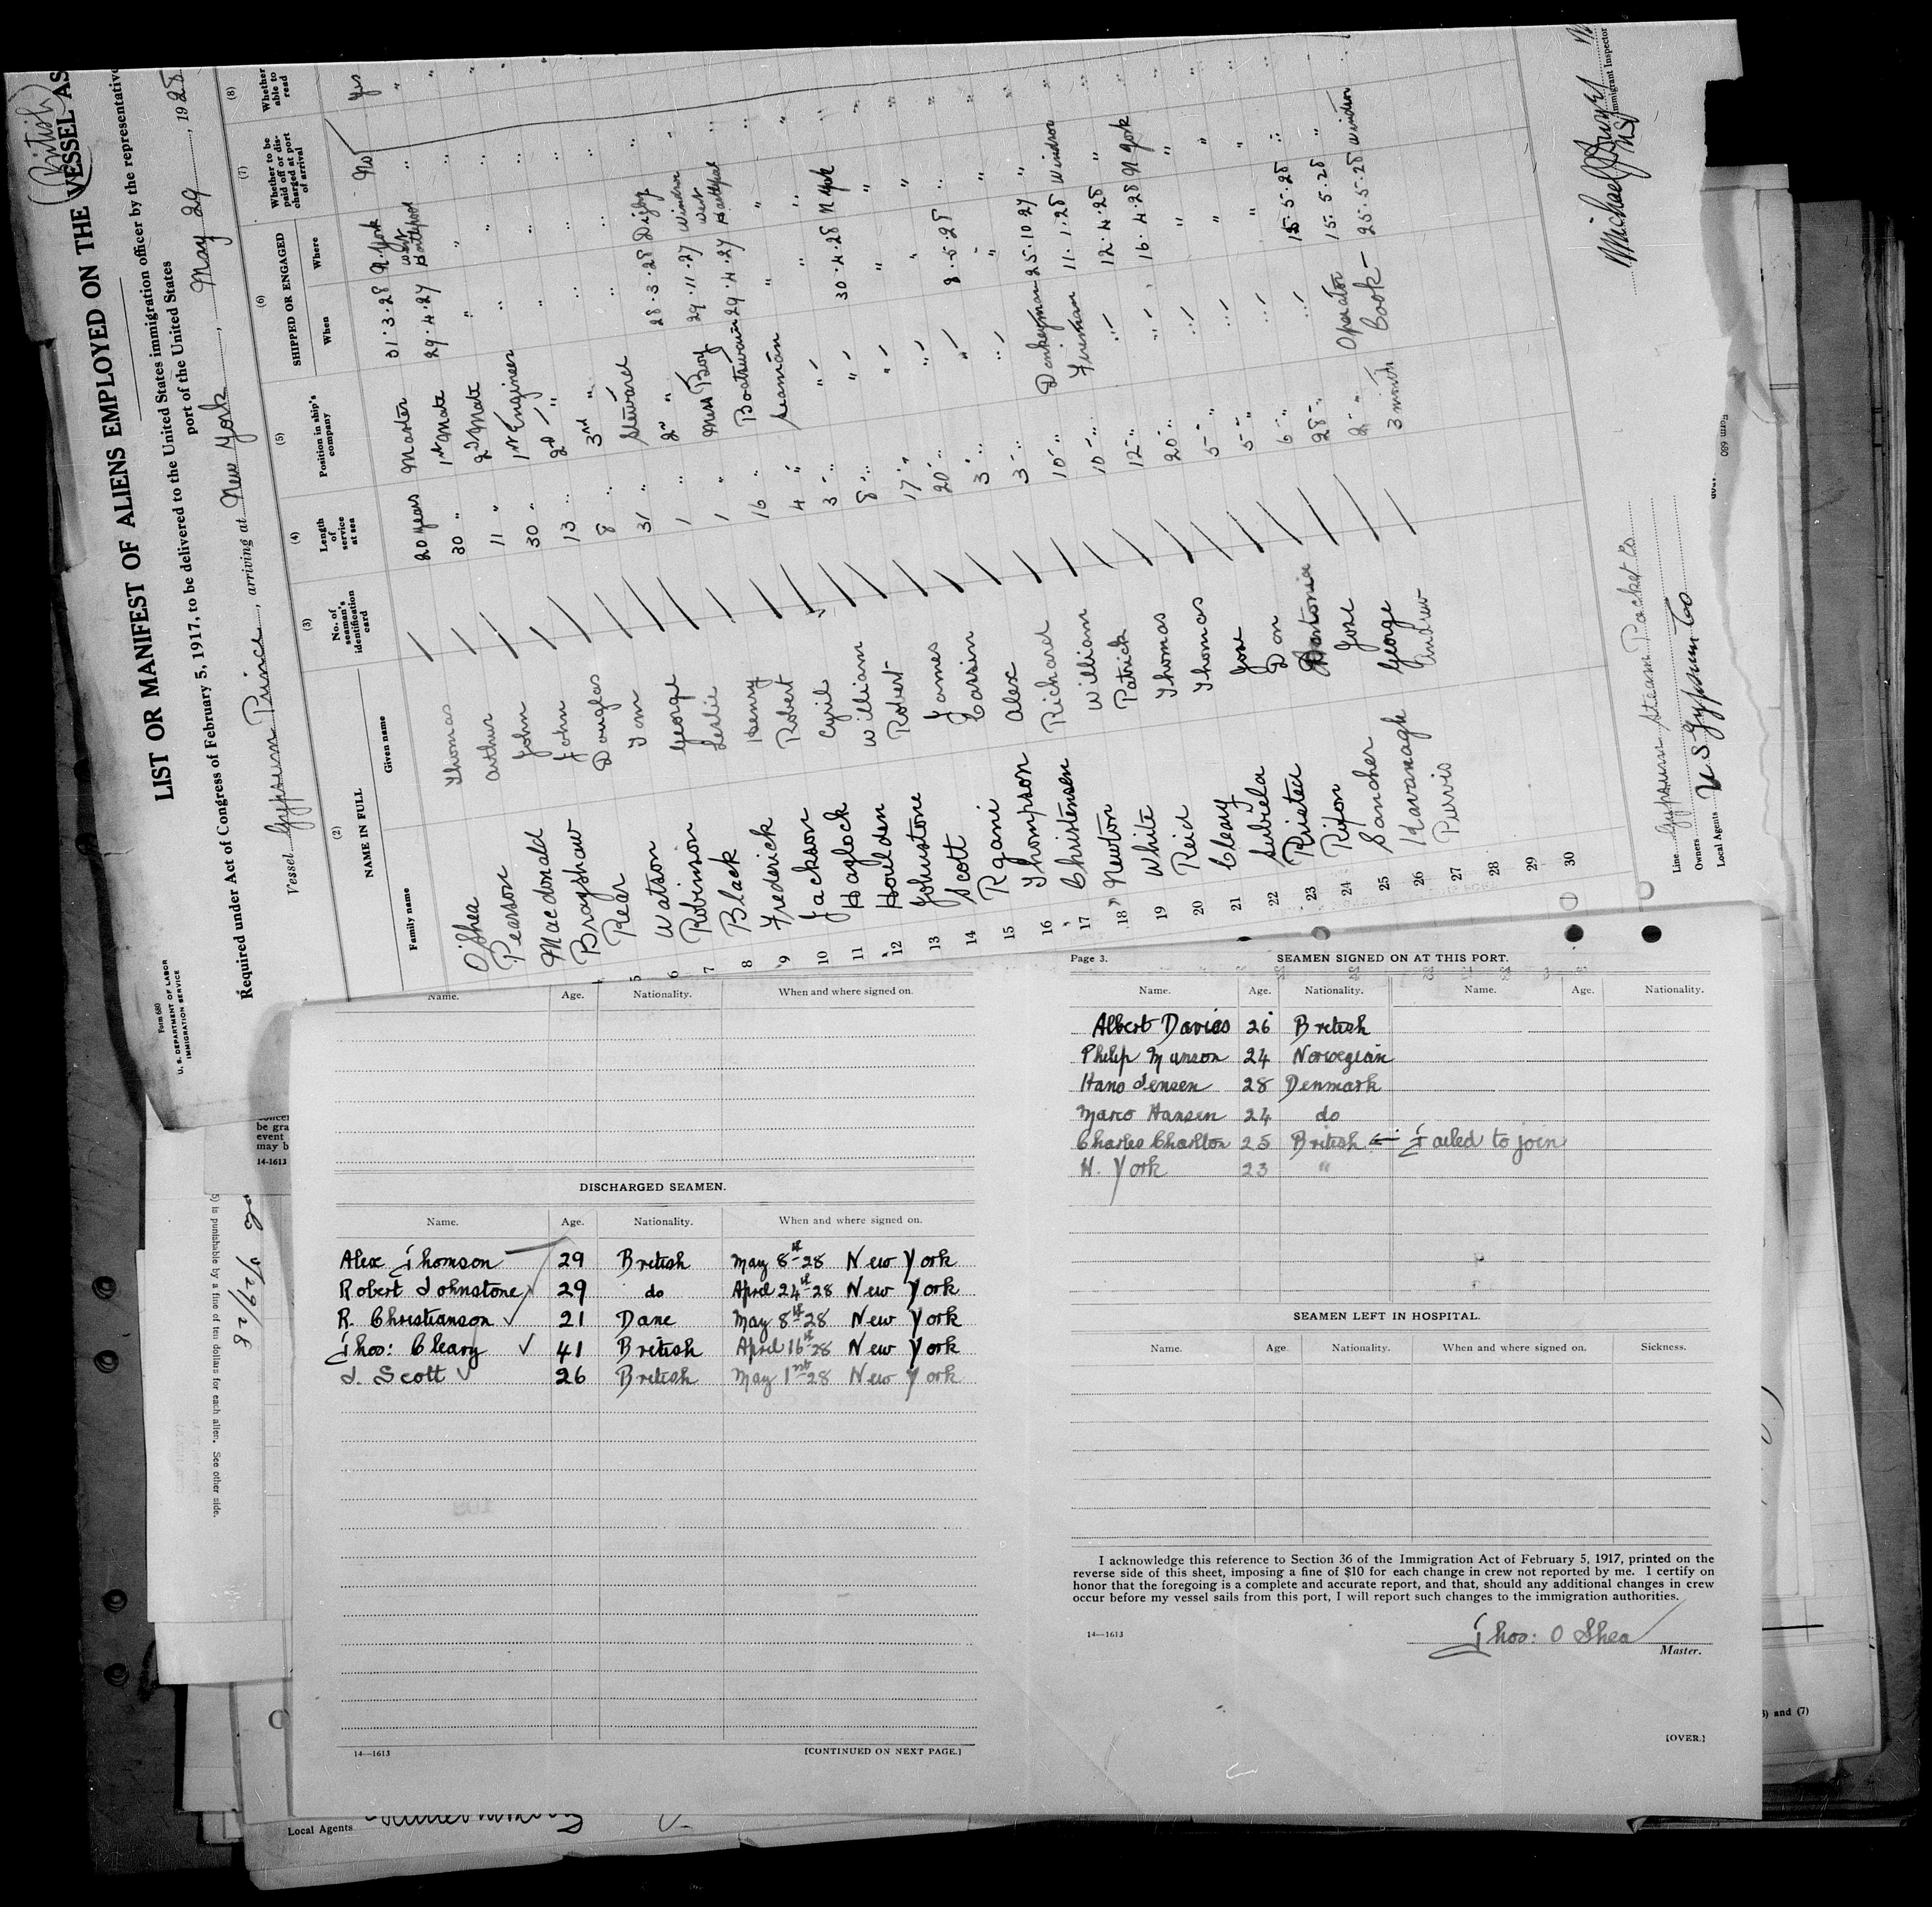 (British)
LIST OR MANIFEST OF ALIENS EMPLOYED ON THE VESSEL AS
Required under Act of Congress of February 5, 1917, to be delivered to the United States immigration officer by the representative
port of the United States
Form 680
U. S. DEPARTMENT OF LABOR
IMMIGRATION SERVICE
Vessel Gypsum Prince, arriving at New York, May 29, 1928
(2) (3) (4) (5) (6) (7) (8)
NAME IN FULL
Family name Given name
No. of seaman's identification card
Length of service at sea
Position in ship's company
SHIPPED OR ENGAGED
When Where
Whether to be paid off or discharged at port of arrival
Whether able to read
O'Shea Thomas 20 years Master 31.3.28 N. York No Yes
Pearson Arthur 30 " 1st Mate 29.4.27 West Hartlepool " "
Macdonald John 11 " 2d Mate " " " "
Brayshaw John 30 " 1st Engineer " " " "
5 Rear Douglas 13 " 2d " " " " "
6 Watson Tom 8 " 3rd " " " " "
7 Robinson George 31 " Steward 28.3.28 Digby " "
8 Black Leslie 1 " 2d " 29.11.27 Windsor " "
9 Frederick Henry 1 " Mess Boy 29.4.27 West Hartlepool
10 Jackson Robert 16 " Boatswain " " " "
11 Haglock Cyril 4 " Seaman " " " "
12 Houlden William 3 " " 30.4.28 N York
13 Johnstone Robert 8 " " " "
14 Scott James 17 " " " "
15 Rgani Cassim 20 " " 8.5.28 "
16 Thompson Alex 3 " " " "
17 Christensen Richard 3 " " "
18 Newton William 10 " Donkeyman 25.10.27 "
19 White Patrick 10 " Fireman 11.1.28 Windsor
20 Reid Thomas 12 " " 12.4.28 "
21 Cleary Thomas 20 " " 16.4.28 N York
22 Subiela Jose 5 " " " "
23 Prieted Don 5 " " " "
24 Rifon Antonia 6 " " " "
25 Sancher Jose 28 " " 15.5.28 "
26 Kavanagh George 2 " Operator 15.5.28 "
27 Purvis Andrew 3 month Cook - 25.5.28 Windsor
28
29
30
Line Gypsum Steam Packet Co
Owners
Local Agents U S Gypsum Co
Immigrant Inspector
Form 680
Name. Age. Nationality. When and where signed on.
DISCHARGED SEAMEN.
Name. Age. Nationality. When and where signed on.
Alex Thomson 29 British May 8th-28 New York
Robert Johnstone 29 do April 24th-28 New York
R. Christianson 21 Dane May 8th-28 New York
Thos: Cleary 41 British April 16th-28 New York
J. Scott 26 British May 1st-28 New York
14—1613 [CONTINUED ON NEXT PAGE.]
Page 3. SEAMEN SIGNED ON AT THIS PORT.
Name. Age. Nationality. Name. Age. Nationality.
Albert Davies 26 British
Philip Munson 24 Norwegian
Hans Jensen 28 Denmark
Marco Hansen 24 do
Charles Charlton 25 British ← Failed to join
H. York 23 "
SEAMEN LEFT IN HOSPITAL.
Name. Age Nationality. When and where signed on. Sickness.
I acknowledge this reference to Section 36 of the Immigration Act of February 5, 1917, printed on the
reverse side of this sheet, imposing a fine of $10 for each change in crew not reported by me. I certify on
honor that the foregoing is a complete and accurate report, and that, should any additional changes in crew
occur before my vessel sails from this port, I will report such changes to the immigration authorities.
14—1613
Thos: O Shea
Master.
[OVER.]
be gra
event
may b
14-1613
5) is punishable by a fine of ten dollars for each alien. See other side.
5/29/28
) and (7)
Local Agents